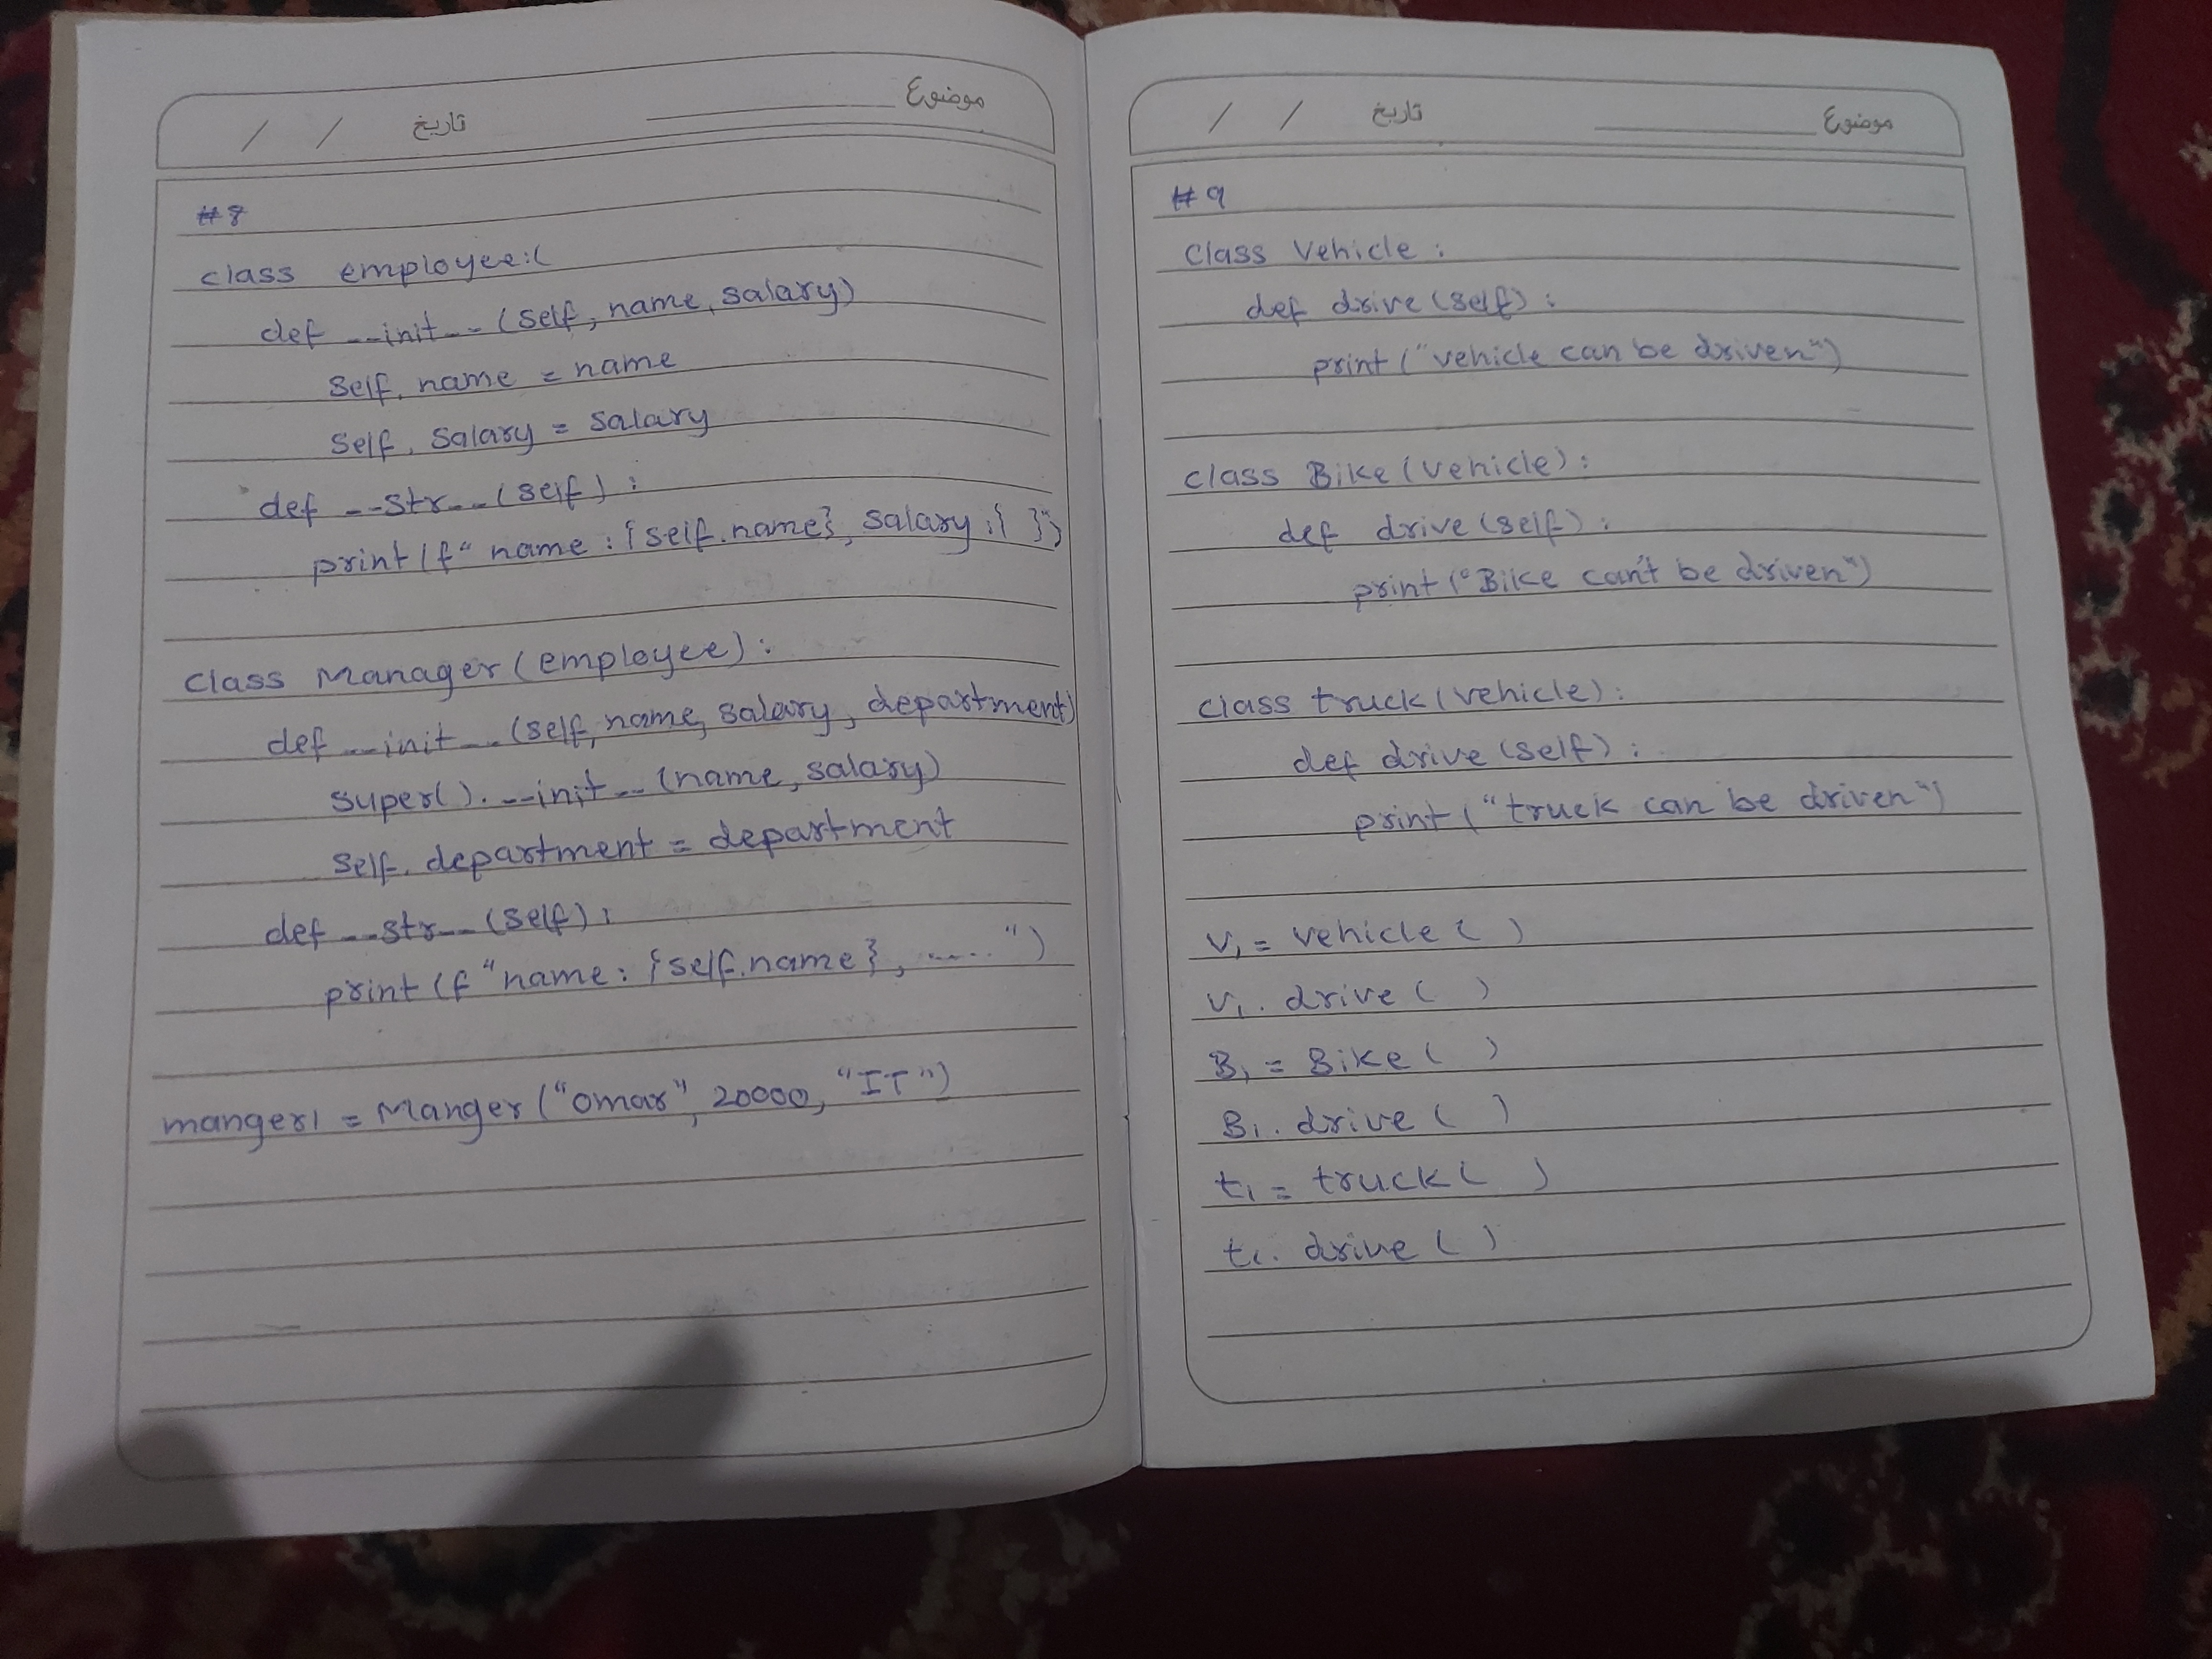 / / تاریخ موضوع
#8
class employee:(
def __init__(self, name, salary)
self.name = name
self.salary = salary
def __str__(self):
print(f"name:{self.name}, salary:{ }")
class Manager(employee):
def __init__(self, name, salary, department)
super().__init__(name, salary)
self.department = department
def __str__(self):
print(f"name:{self.name}, ....")
manger1 = Manger("omar", 20000, "IT")
/ / تاریخ موضوع
#9
class vehicle:
def drive(self):
print("vehicle can be driven")
class Bike(vehicle):
def drive(self):
print("Bike can't be driven")
class truck(vehicle):
def drive(self):
print("truck can be driven")
v1 = vehicle()
v1.drive()
B1 = Bike()
B1.drive()
t1 = truck()
t1.drive()